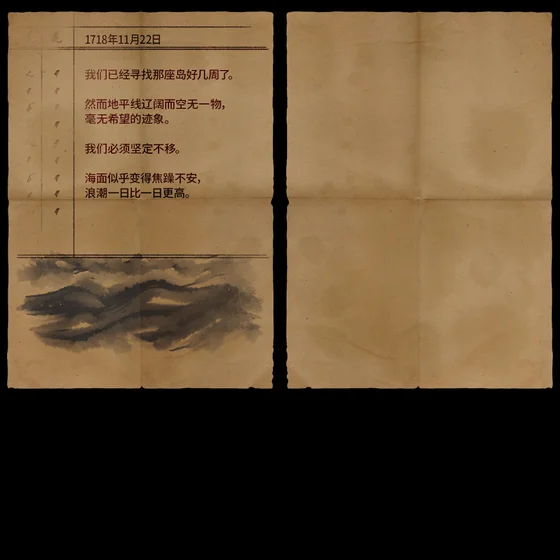 1718年11月22日
我们已经寻找那座岛好几周了。
然而地平线辽阔而空无一物，
毫无希望的迹象。
我们必须坚定不移。
海面似乎变得焦躁不安，
浪潮一日比一日更高。